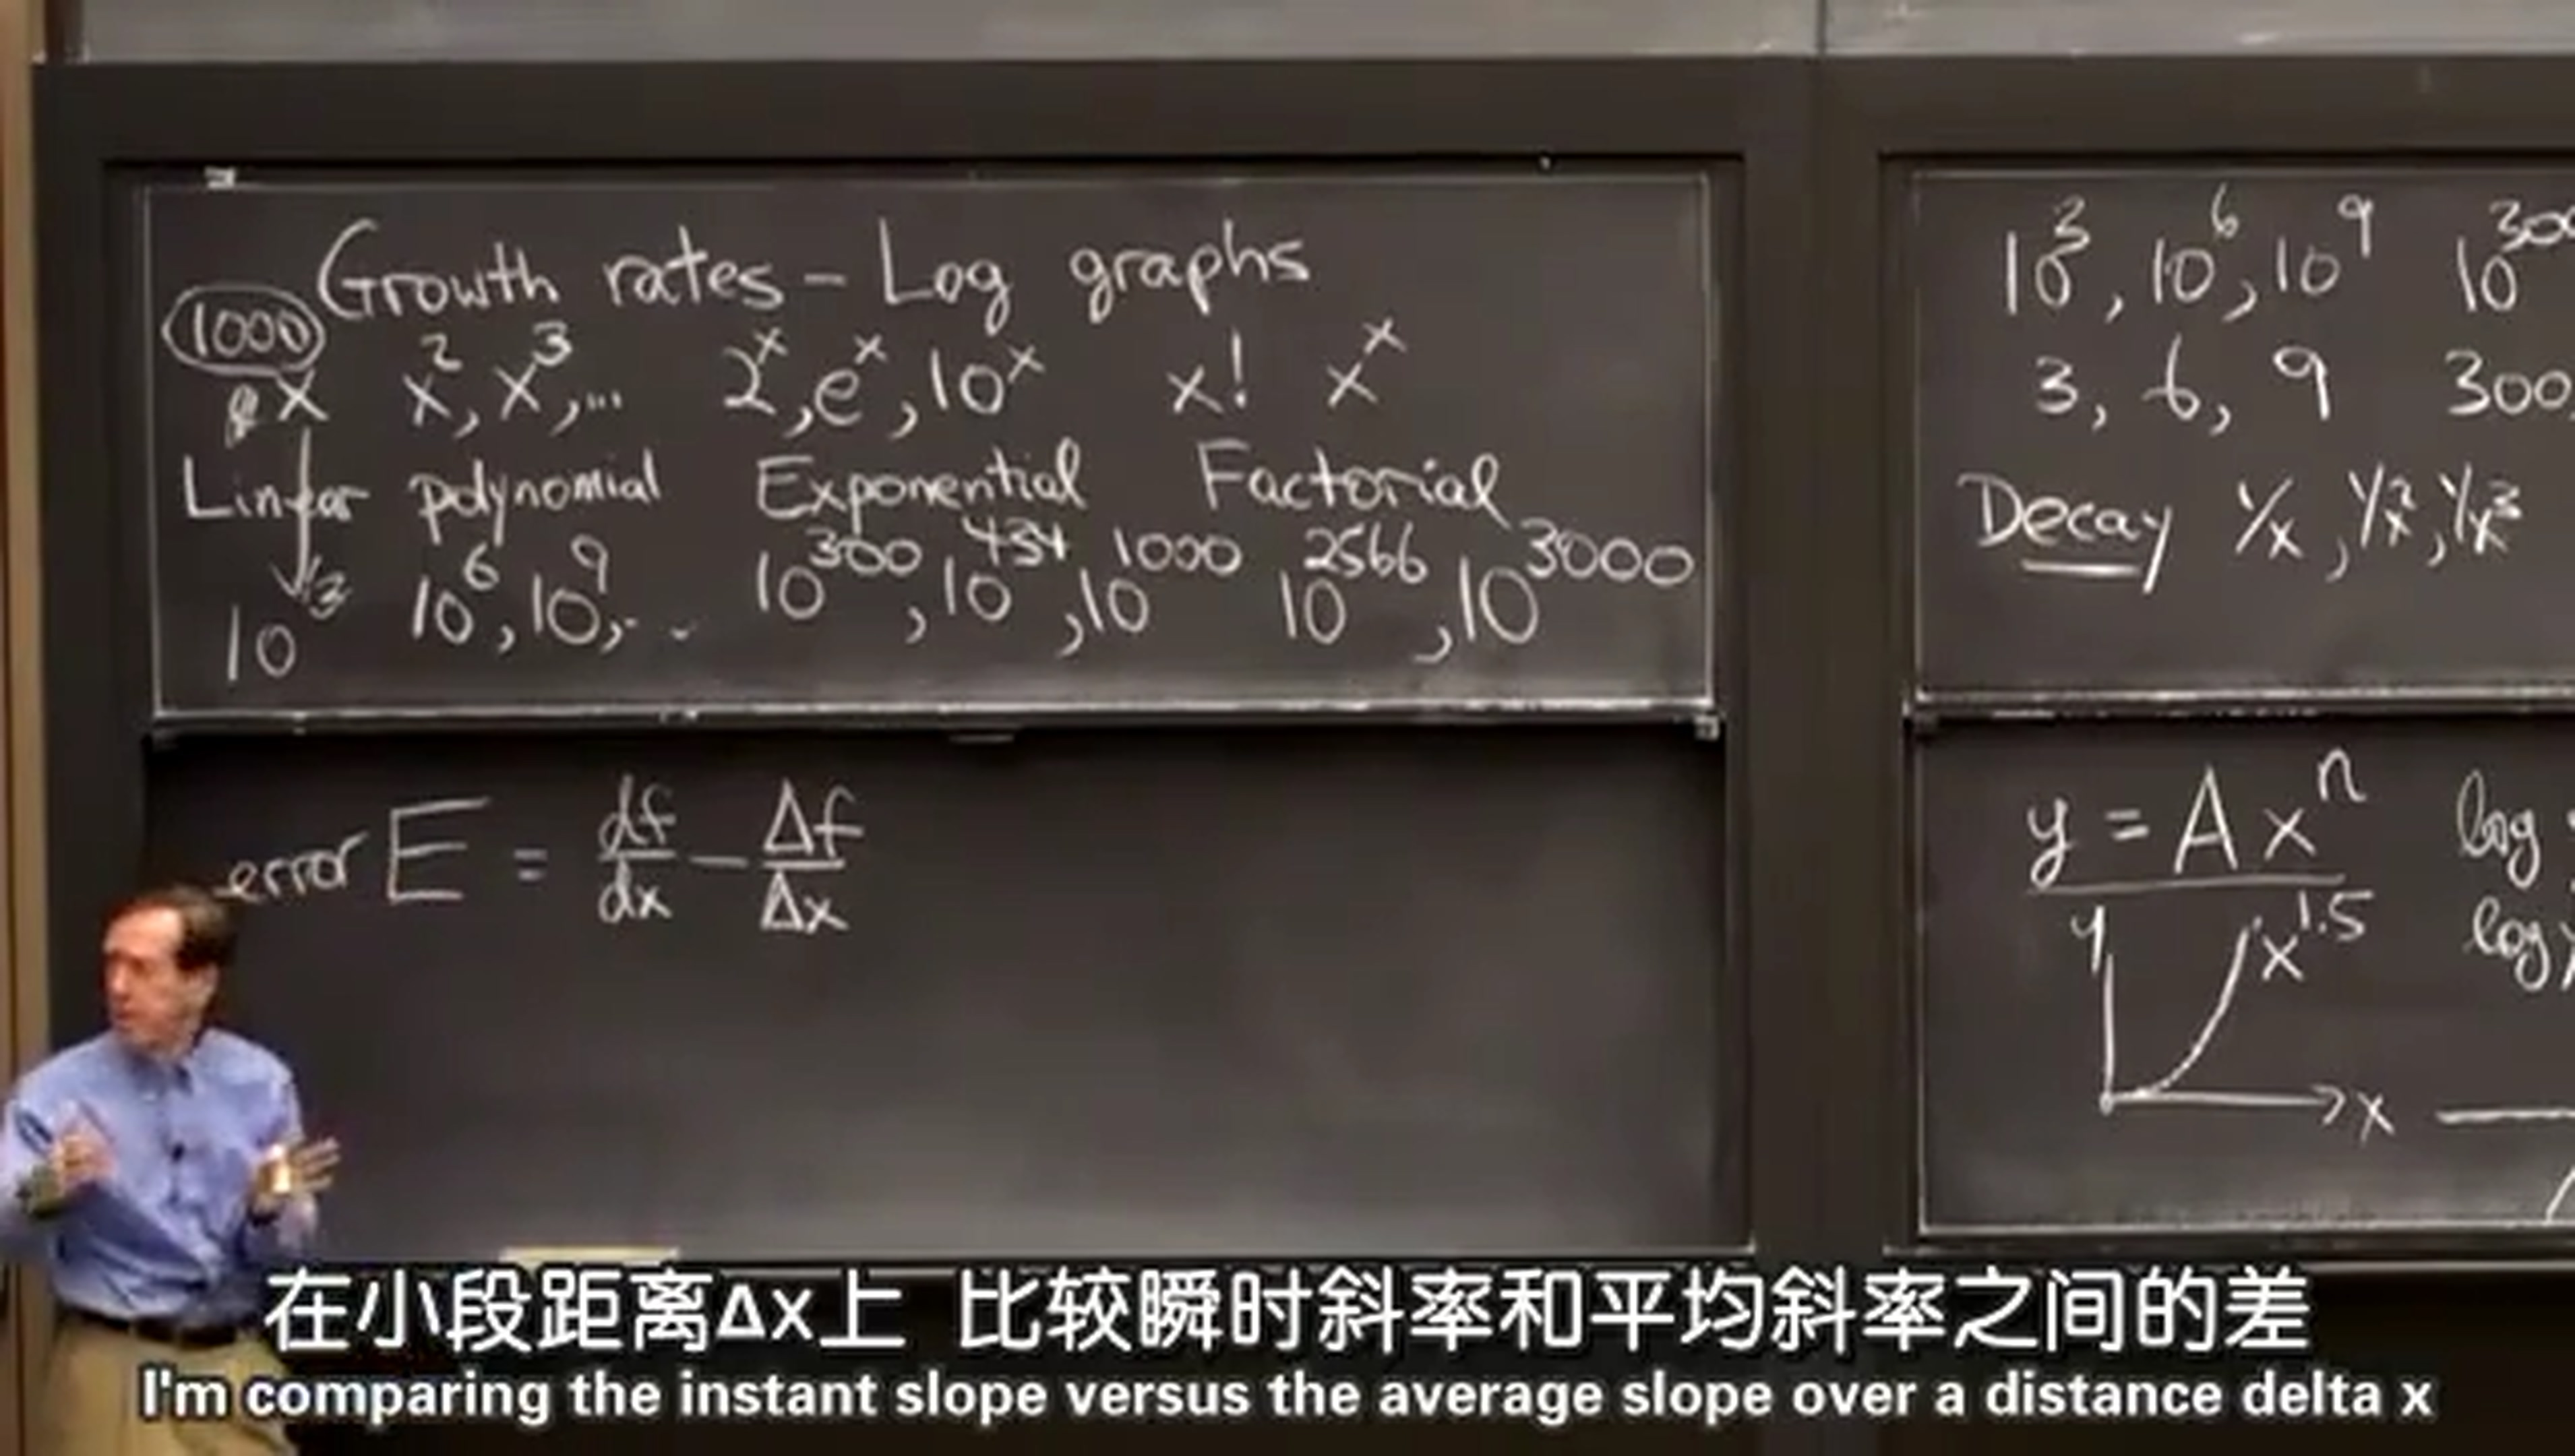 Growth rates - Log graphs
1000
cx x², x³, ... 2ˣ, eˣ, 10ˣ x! xˣ
Linear polynomial Exponential Factorial
10³ 10⁶, 10⁹, .. 10³⁰⁰, 10⁴³⁴, 10¹⁰⁰⁰ 10²⁵⁶⁶, 10³⁰⁰⁰
error E = df/dx - Δf/Δx
10³, 10⁶, 10⁹ 10³⁰⁰
3, 6, 9 300
Decay 1/x, 1/x², 1/x³
y = Axⁿ log
log y
y x¹·⁵
x
在小段距离Δx上 比较瞬时斜率和平均斜率之间的差
I'm comparing the instant slope versus the average slope over a distance delta x